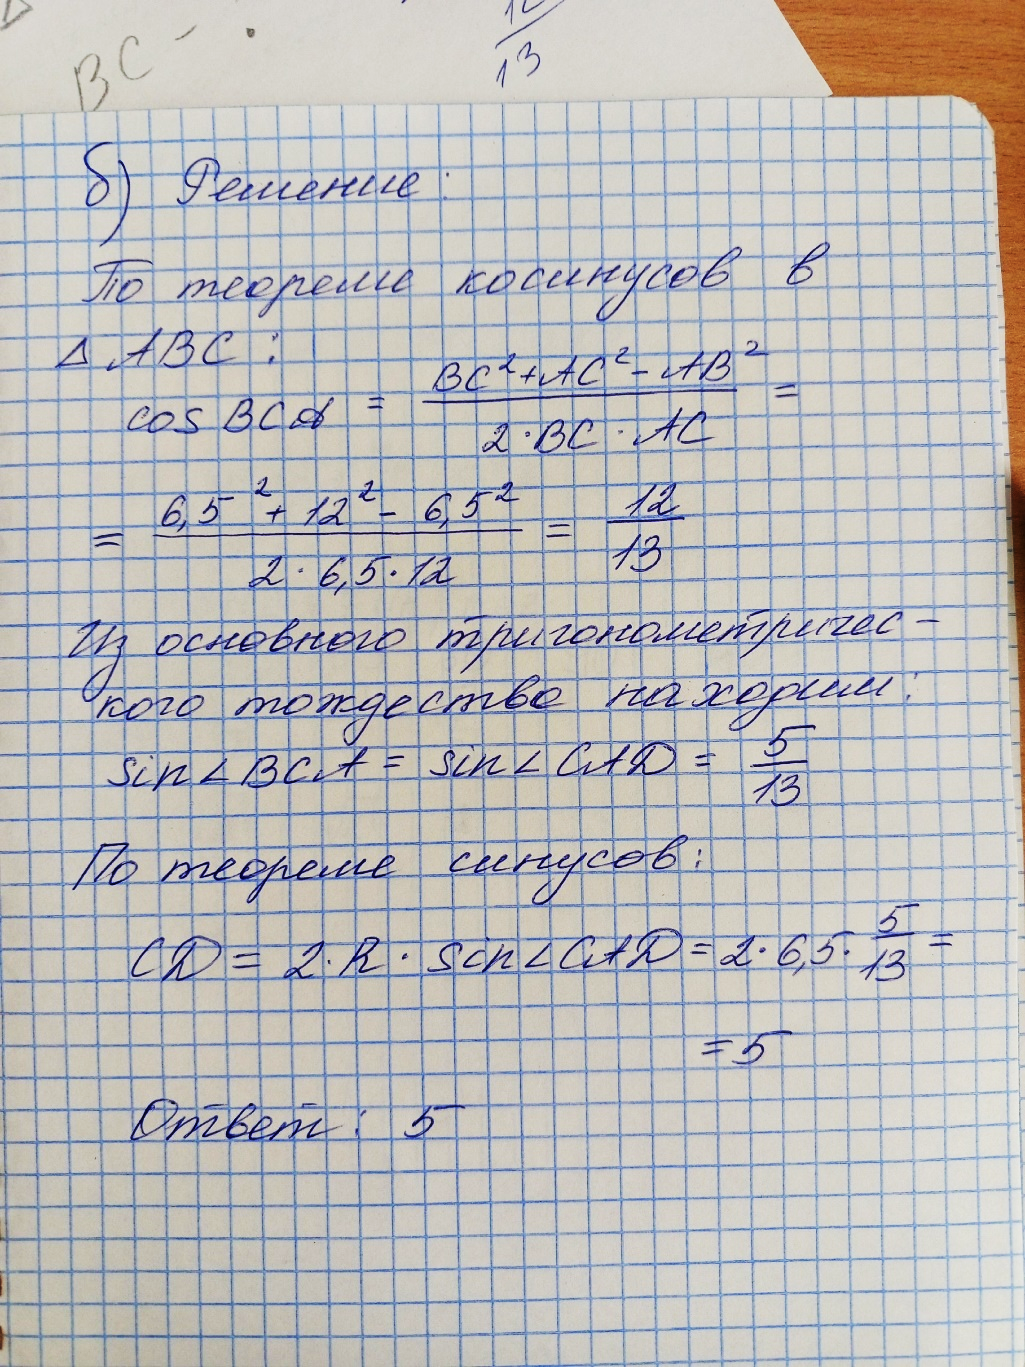 BC -
12/13
б) Решение:
По теореме косинусов в
△ ABC :
cos BCA = (BC² + AC² - AB²)/(2 · BC · AC) =
= (6,5² + 12² - 6,5²)/(2 · 6,5 · 12) = 12/13
Из основного тригонометричес -
кого тождество находим:
sin∠BCA = sin∠CAD = 5/13
По теореме синусов:
CD = 2 · R · sin∠CAD = 2 · 6,5 · 5/13 =
= 5
Ответ: 5